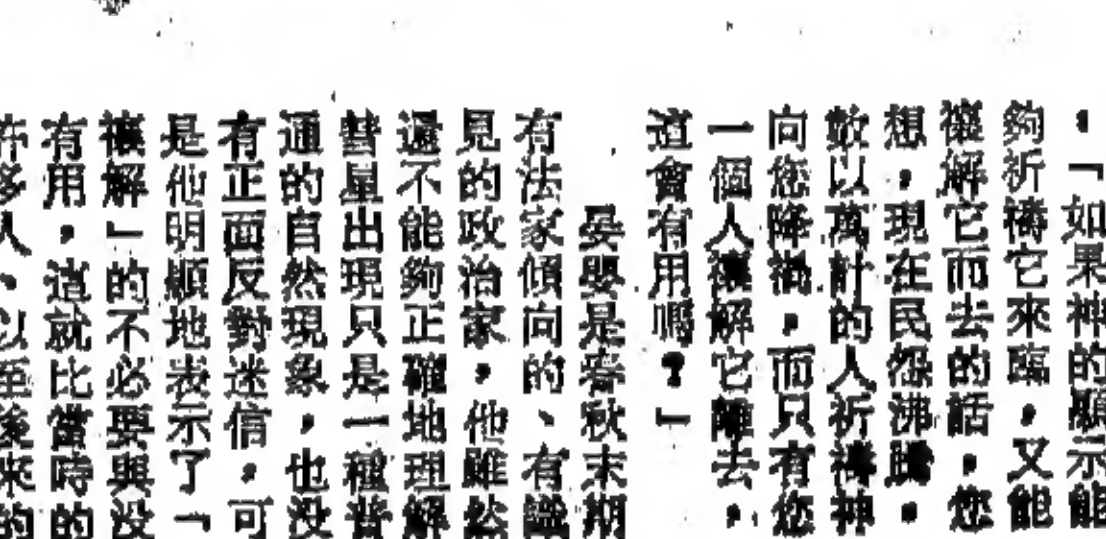 。「如果神的顯示能
夠祈禱它來臨，又能
禳解它而去的話，您
想，現在民怨沸騰，
數以萬計的人祈禱神
向您降禍，而只有您
一個人禳解它離去，
這會有用嗎？」
晏嬰是春秋末期
有法家傾向的、有識
見的政治家，他雖然
還不能夠正確地理解
彗星出現只是一種普
通的自然現象，也没
有正面反對迷信，可
是他明顯地表示了「
禳解」的不必要與没
有用，這就比當時的
許多人、以至後來的